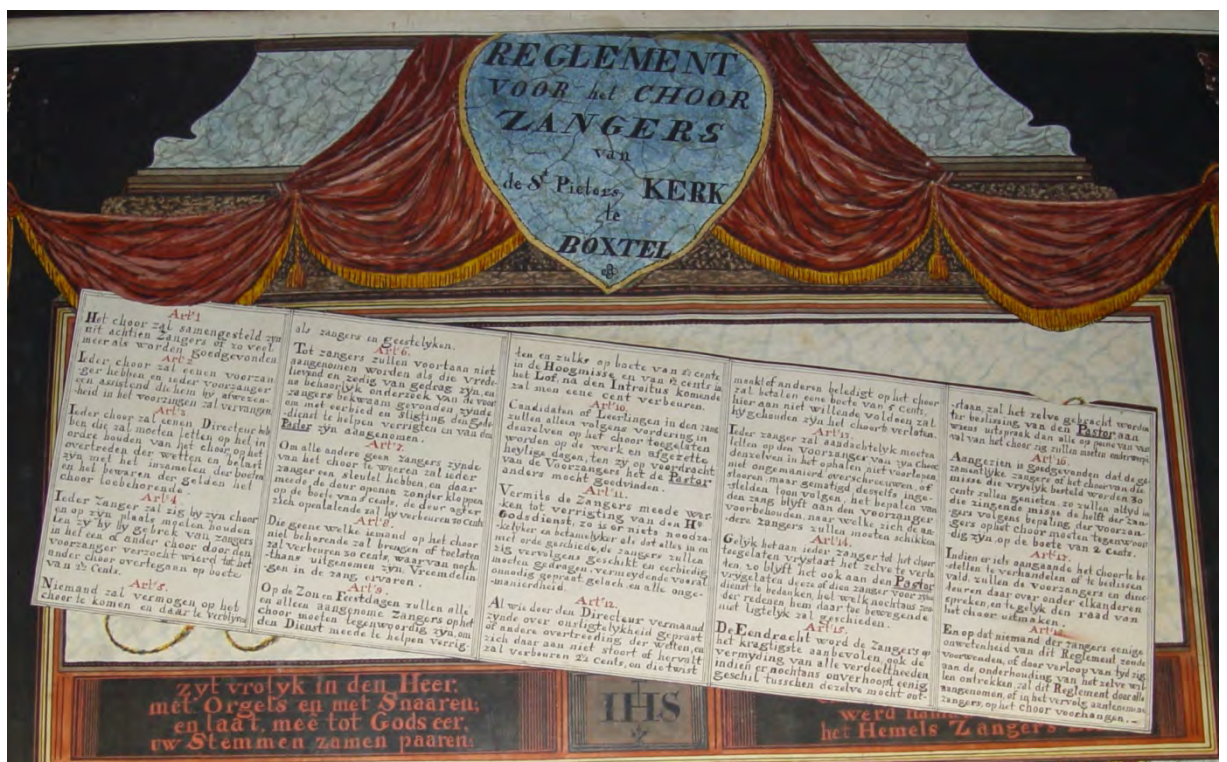 REGLEMENT
VOOR het CHOOR
ZANGERS
van
de St Pieters KERK
te
BOXTEL
Artl 1
Het choor zal samengesteld zyn
uit achtien Zangers of zo veel
meer als worden goedgevonden
Artl 2
Ieder choor zal eenen voorzan-
ger hebben en ieder voorzanger
een assistend die hem by afwezen-
heid in het voorzingen zal vervangen
Artl 3
Ieder choor zal eenen Directeur heb-
ben die zal moeten letten op het in
ordre houden van 't choor, op het
overtreden der wetten en belast
zyn met het inzamelen der boeten
en het bewaren der gelden het
choor toebehorende.
Artl 4
Ieder Zanger zal zig by zyn choor
en op zyn plaats moeten houden
ten zy hy by gebrek van zangers
in het een of ander choor door den
voorzanger verzocht wierd tot het
ander choor overtegaan op boete
van 2½ Cents.
Artl 5.
Niemand zal vermogen, op het
choor te komen en daar te verblyven
als zangers in geestelyken.
Artl 6.
Tot zangers zullen voortaan niet
aangenomen worden als die vrede-
lievend en zedig van gedrag zyn, en
na behoorlyk onderzoek van de voor-
zangers bekwaam gevonden zynde
om met eerbied en stigting den gods-
dienst te helpen verrigten en van den
Pastor zyn aangenomen.
Artl 7.
Om alle andere geen zangers zynde
van het choor te weeren zal ieder
zanger een sleutel hebben, en daar
meede de deur openen zonder kloppen
op de boete van 5 cents, de deur agter
zich openlatende zal hy verbeuren 20 Cents
Artl 8.
Die geene welke iemand op het choor
niet behorende zal brengen of toelaten
zal verbeuren 30 cents, waar van noch-
thans uitgenomen zyn Vreemdelin-
gen in de zang ervaren.
Artl 9.
Op de Zon en Feestdagen zullen alle
en alleen aangenome Zangers op het
choor moeten tegenwoordig zyn, om
den Dienst meede te helpen verrig-
ten en zulks op boete van 2½ cents
in de Hoogmisse en van 2½ cents in
het Lof, na den Introitus komende
zal men eene cent verbeuren.
Artl 10.
Candidaten of Leerlingen in den zang
zullen alleen volgens vordering in
denzelven op het choor toegelaten
worden op de werk en afgezette
heylige dagen, ten zy op voordracht
van de Voorzangers het de Pastor
anders mocht goedvinden.
Artl 11.
Vermits de Zangers meede wer-
ken tot verrigting van den He.
Godsdienst, zo is er niets noodza-
kelyker en betamelyker als dat alles in en
met orde geschiede, de zangers zullen
zig vervolgens geschikt en eerbiedig
moeten gedragen, vermeydende vooral
onnodig gepraat gelach, en alle onge-
manierdheid.
Artl 12.
Al wie door den Directeur vermaand
zynde over onstigtelykheid gepraat
of andere overtreeding der wetten, en
zich daar aan niet stoort of hervalt
zal verbeuren 2½ Cents, en die twist
maakt of anderen beledigt op het choor
zal betalen eene boete van 5 Cents,
hier aan niet willende voldoen zal
hy gehouden zyn het choor te verlaten.
Artl 13.
Ieder zanger zal aandachtelyk moeten
letten op den voorzanger van zyn choor
denzelven in het ophalen niet voorlopen
niet ongemanierd overschreeuwen, of
stooren, maar gematigd deszelfs inge-
stelden toon volgen, het bepalen van
den zang blyft aan den voorzanger
voorbehouden, naar welke zich de an-
dere zangers zullen moeten schikken
Artl 14.
Gelyk het aan ieder zanger tot het choor
toegelaten vrystaat het zelve te verla-
ten, zo blyft het ook aan den Pastor
vrygelaten deze of die zanger voor zyn
dienst te bedanken, het welk nochtans zon-
der redenen hem daar toe bewegende
niet ligtelyk zal geschieden.
Artl 15.
De Eendracht word de Zangers op
het kragtigste aanbevolen, ook de
vermyding van alle verdeeltheeden
indien er nochtans onverhoopt eenig
geschil tusschen dezelve mocht ont-
staan, zal het zelve gebracht worden
ter beslissing van den Pastor aan
wiens uitspraak den alle op poene van
val van het choor, zig zullen moeten onderwerpen
Artl 16.
Aangezien is goedgevonden dat de ge-
zamentlyke zangers of het choor van die
misse die vrywillig besteld werden 30
cents zullen genieten, zo zullen altyd in
die zingende misse de helft der zan-
gers volgens bepaling der voorzan-
gers op het choor moeten tegenwoor-
dig zyn, op de boete van 2 cents.
Artl 17.
Indien er iets aangaande het choor te be-
stellen te verhandelen of te beslissen
vald, zullen de voorzangers en direc-
teuren daar over onder elkanderen
spreken, en te gelyk den raad van
het choor uitmaken.
Artl 18.
En op dat niemand der zangers eenige
onwetenheid van dit Reglement zoude
voorwenden, of door verloop van tyd zig
aan de onderhouding van het zelve wil-
len ontrekken, zal dit Reglement door alle
aangenomen, of in het vervolg aanteneemen
zangers, op het choor voorhangen.
zyt vrolyk in den Heer.
met Orgels en met Snaaren;
en laat, mee tot Gods eer,
uw Stemmen zamen paaren.
IHS
werd
het Hemels Zangers